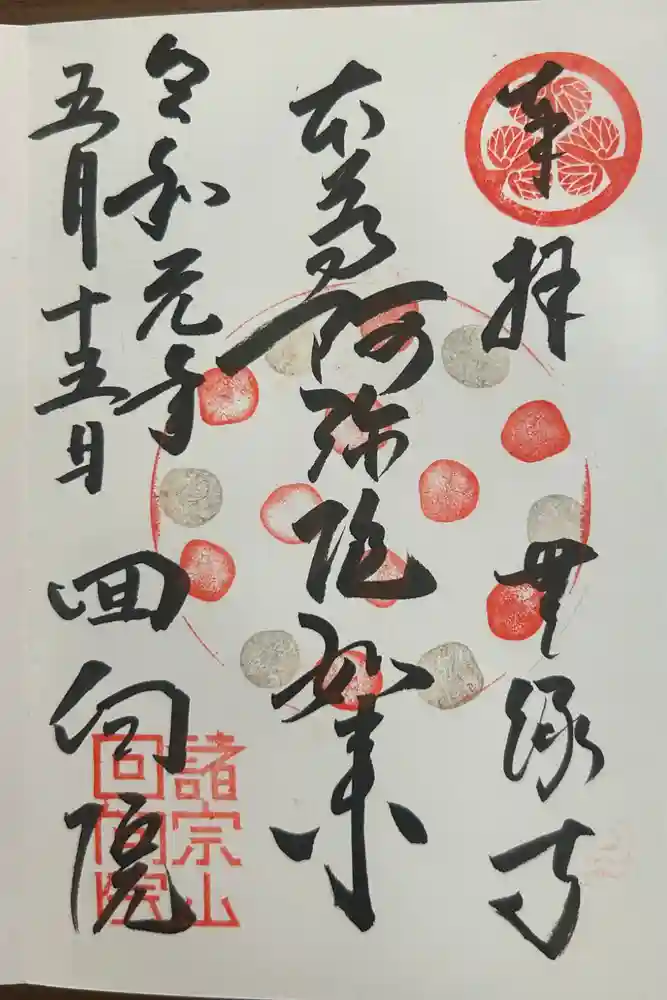 奉拝
無縁寺
本尊阿弥陀如来
令和元年
五月十五日
回向院
諸宗山
回向院